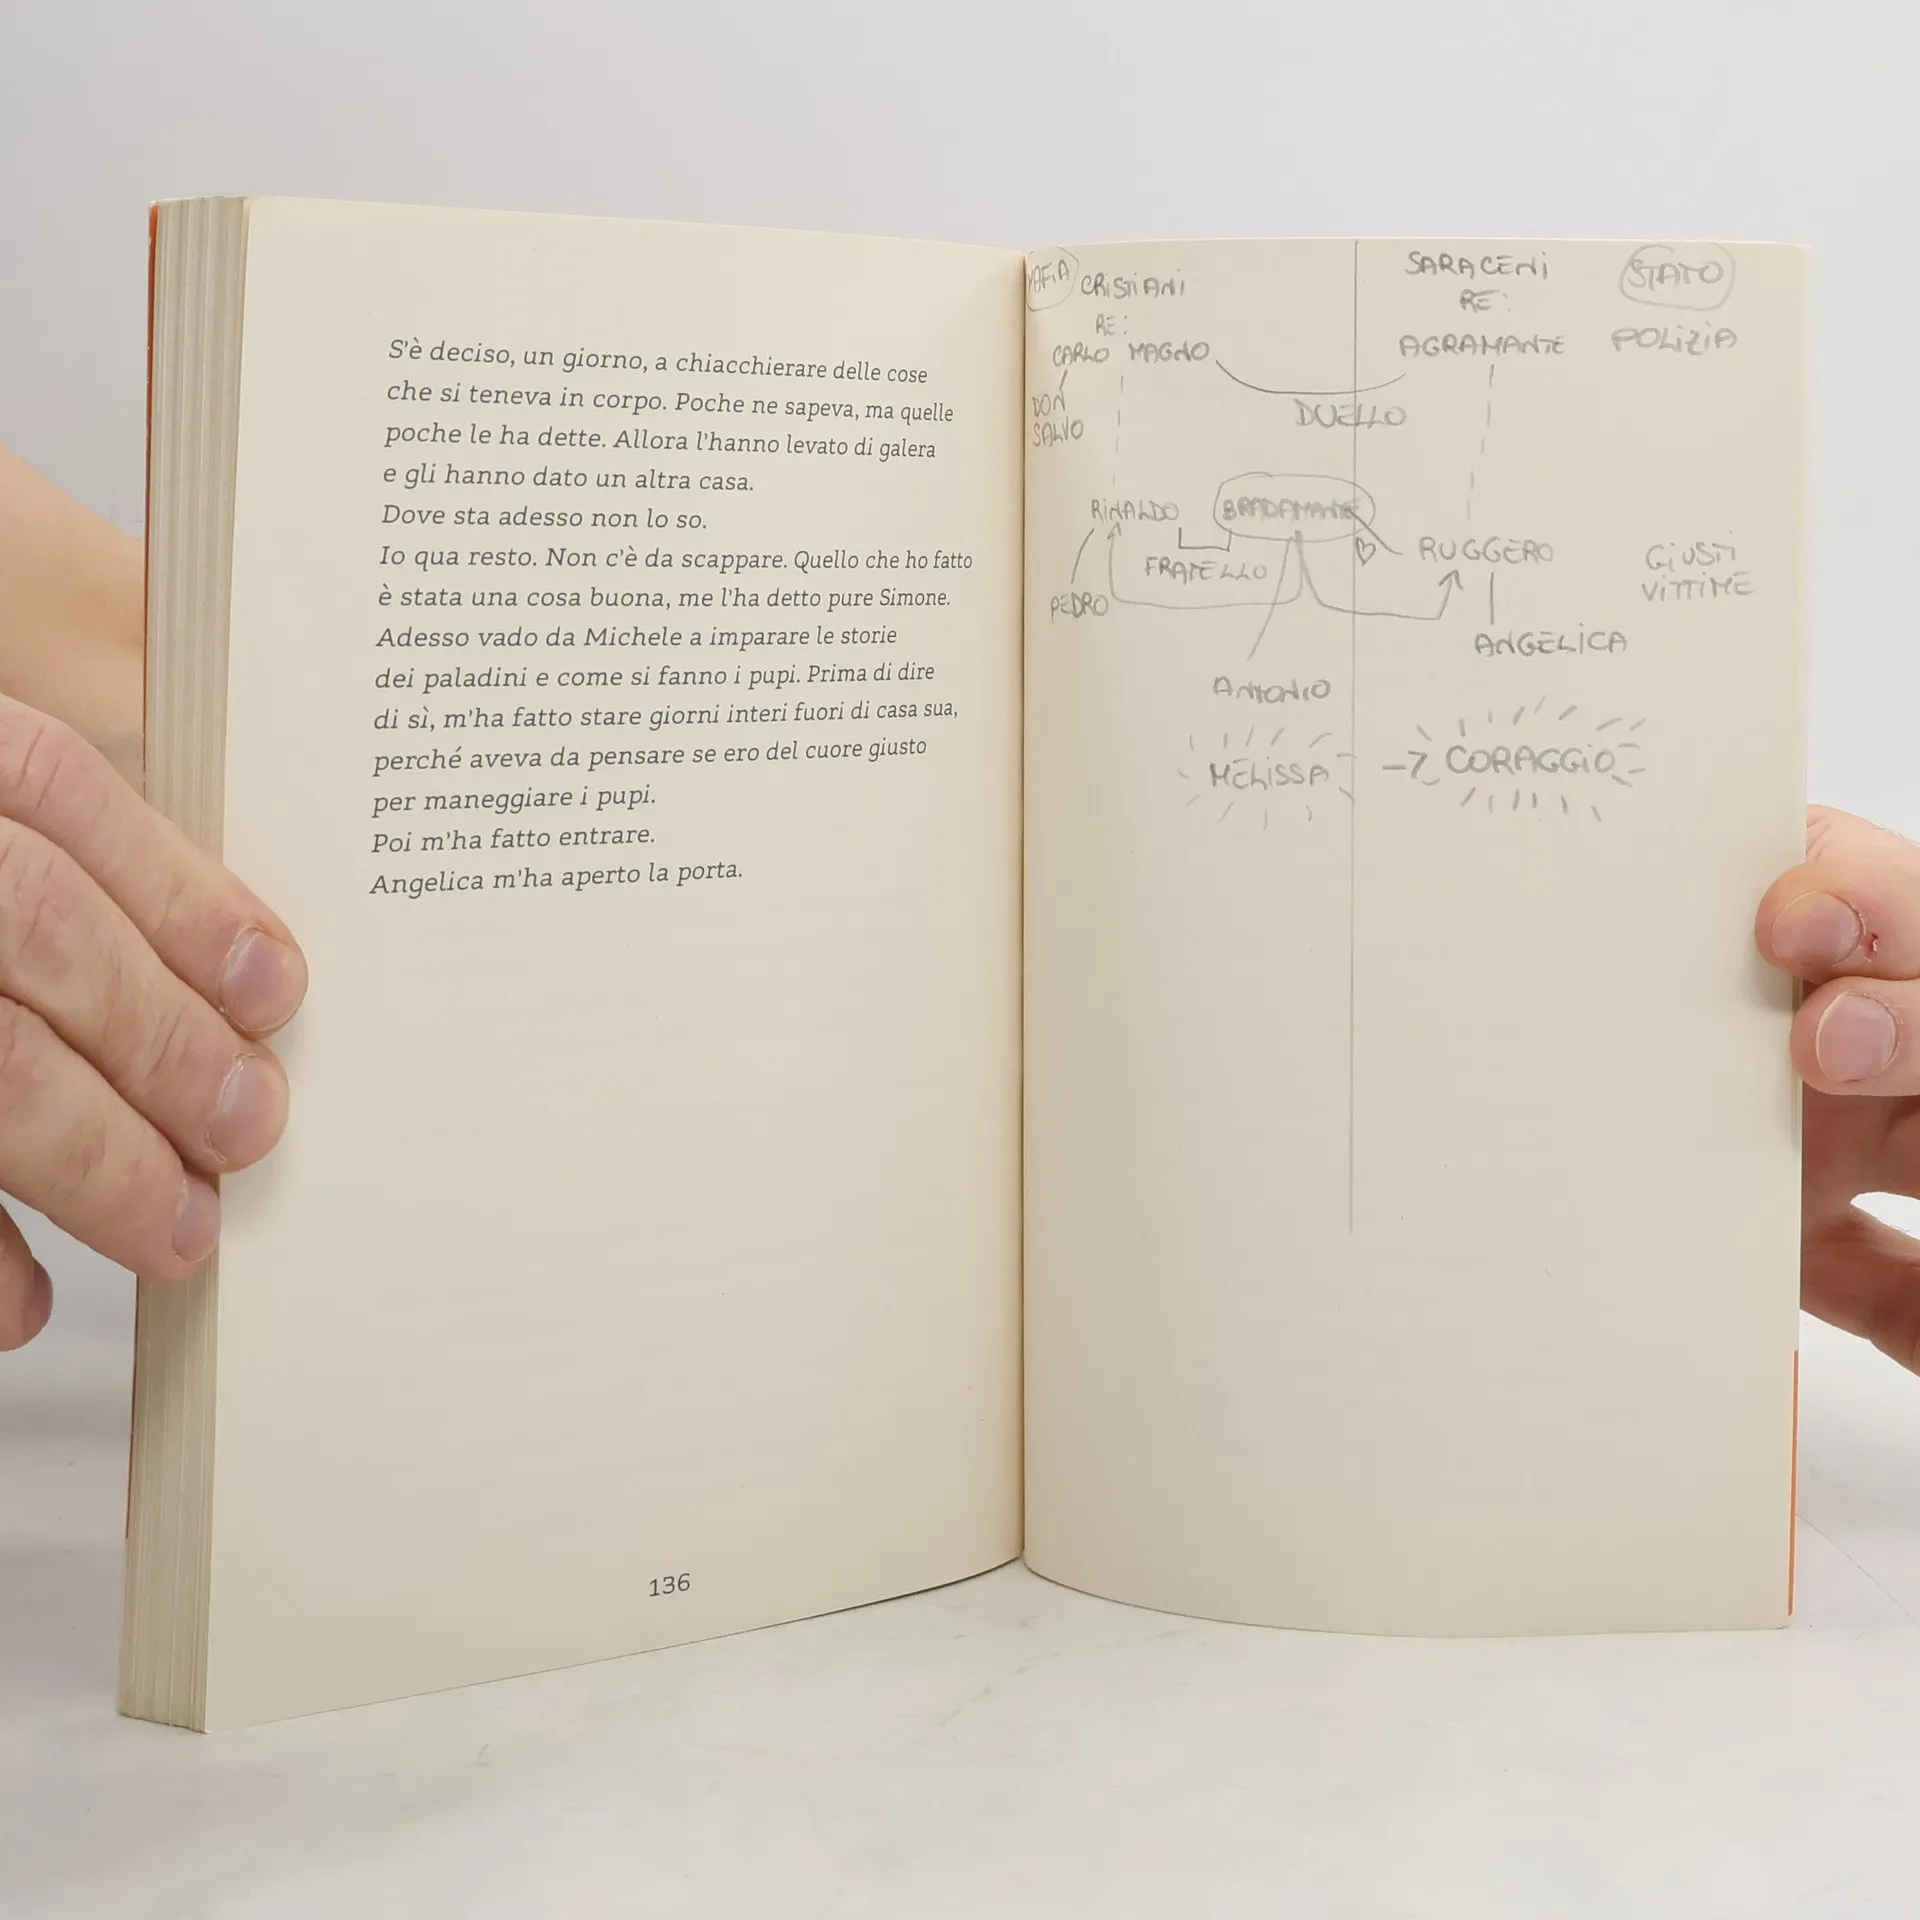 S'è deciso, un giorno, a chiacchierare delle cose
che si teneva in corpo. Poche ne sapeva, ma quelle
poche le ha dette. Allora l'hanno levato di galera
e gli hanno dato un altra casa.
Dove sta adesso non lo so.
Io qua resto. Non c'è da scappare. Quello che ho fatto
è stata una cosa buona, me l'ha detto pure Simone.
Adesso vado da Michele a imparare le storie
dei paladini e come si fanno i pupi. Prima di dire
di sì, m'ha fatto stare giorni interi fuori di casa sua,
perché aveva da pensare se ero del cuore giusto
per maneggiare i pupi.
Poi m'ha fatto entrare.
Angelica m'ha aperto la porta.
136
MAFIA CRISTIANI
RE:
CARLO MAGNO
DON
SALVO
SARACENI
RE:
AGRAMANTE
STATO
POLIZIA
DUELLO
RINALDO BRADAMANTE
FRATELLO
PEDRO
RUGGERO
GIUSTI
VITTIME
ANGELICA
ANTONIO
MELISSA → CORAGGIO